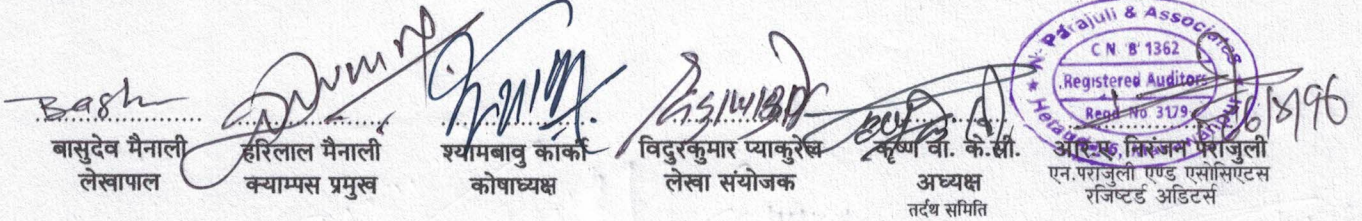 N. Parajuli & Associates
C N. 'B' 1362
Registered Auditors
Regd No. 3179
बासुदेव मैनाली
लेखापाल
हरिलाल मैनाली
क्याम्पस प्रमुख
श्यामबावु कार्की
कोषाध्यक्ष
विदुरकुमार प्याकुरेल
लेखा संयोजक
कृष्ण वा. के.सी.
अध्यक्ष
तर्दथ समिति
आर.ए. निरंजन पराजुली
एन.पराजुली एण्ड एसोसिएटस
रजिष्टर्ड अडिटर्स